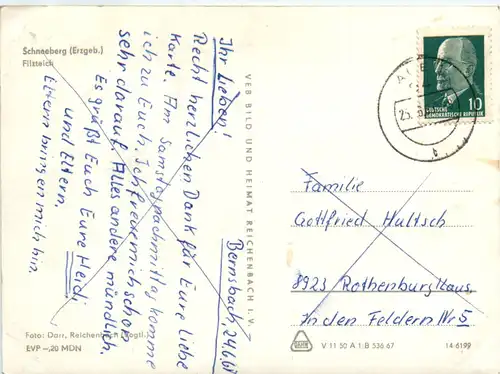 Schneeberg (Erzgeb.)
Filzteich
Bernsbach, 24.6.68
Ihr Lieben!
Recht herzlichen Dank für Eure liebe
Karte. Am Samstagnachmittag komme
ich zu Euch. Ich freue mich schon
sehr darauf. Alles andere mündlich.
Es grüßt Euch Eure Heidi
und Eltern.
Eltern bringen mich hin.
Foto: Darr, Reichenbach (Vogtl.)
EVP -,20 MDN
VEB BILD UND HEIMAT REICHENBACH I. V.
DEUTSCHE
DEMOKRATISCHE REPUBLIK
10
Familie
Gottfried Hultsch
8923 Rothenburg/Laus.
In den Feldern Nr 5
V 11 50 A 1/B 536/67
14-6199